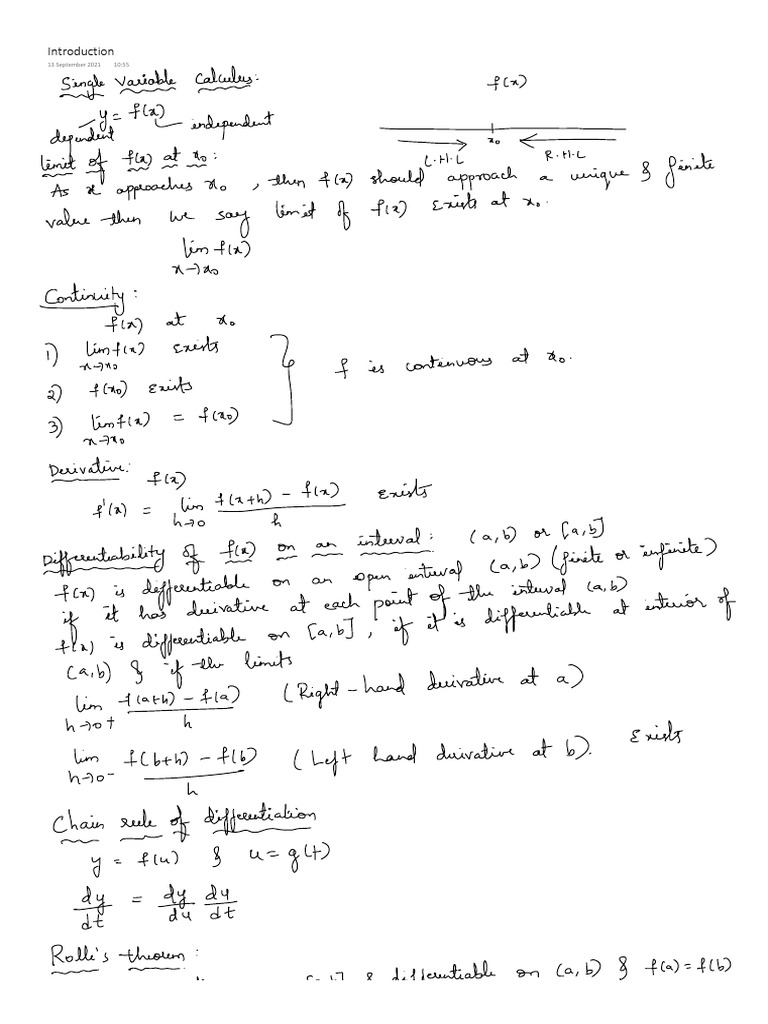 Introduction
13 September 2021 10:55
Single Variable Calculus:
f(x)
y = f(x)
dependent independent
x₀
L.H.L R.H.L
Limit of f(x) at x₀:
As x approaches x₀, then f(x) should approach a unique & finite
value then we say limit of f(x) exists at x₀.
lim f(x)
x→x₀
Continuity:
f(x) at x₀
1) lim f(x) exists
x→x₀
2) f(x₀) exists
f is continuous at x₀.
3) lim f(x) = f(x₀)
x→x₀
Derivative: f(x)
f'(x) = lim h→0 (f(x+h) - f(x))/h exists
Differentiability of f(x) on an interval: (a,b) or [a,b]
f(x) is differentiable on an open interval (a,b) (finite or infinite)
if it has derivative at each point of the interval (a,b)
f(x) is differentiable on [a,b], if it is differentiable at interior of
(a,b) & if the limits
lim h→0+ (f(a+h) - f(a))/h (Right-hand derivative at a)
lim h→0- (f(b+h) - f(b))/h (Left hand derivative at b). exists
Chain rule of differentiation
y = f(u) & u = g(t)
dy/dt = dy/du du/dt
Rolle's theorem:
& differentiable on (a,b) & f(a) = f(b)